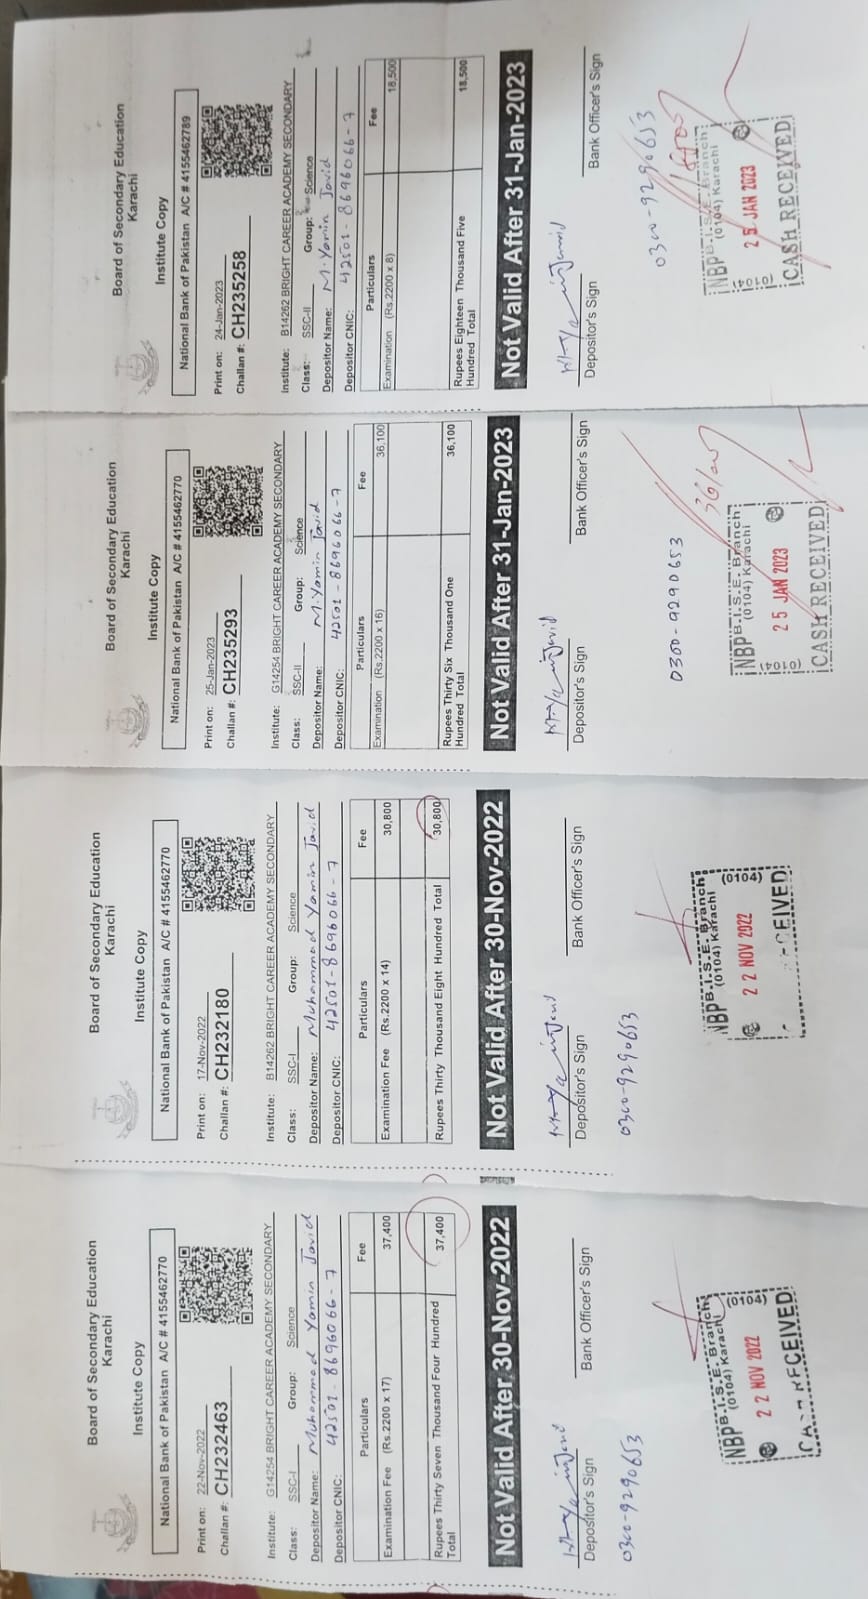 Board of Secondary Education
Karachi
Institute Copy
National Bank of Pakistan A/C # 4155462770
Print on: 22-Nov-2022
Challan #: CH232463
Institute: G14254 BRIGHT CAREER ACADEMY SECONDARY
Class: SSC-I Group: Science
Depositor Name: Muhammad Yamin Javid
Depositor CNIC: 42501-8696066-7
Particulars Fee
Examination Fee (Rs.2200 x 17) 37,400
Rupees Thirty Seven Thousand Four Hundred
Total 37,400
Not Valid After 30-Nov-2022
M.Yamin Javid
Depositor's Sign Bank Officer's Sign
0300-9290653
NBP B.I.S.E. Branch
(0104) Karachi
(0104)
22 NOV 2022
CASH RECEIVED
Board of Secondary Education
Karachi
Institute Copy
National Bank of Pakistan A/C # 4155462770
Print on: 17-Nov-2022
Challan #: CH232180
Institute: B14262 BRIGHT CAREER ACADEMY SECONDARY
Class: SSC-I Group: Science
Depositor Name: Muhammad Yamin Javid
Depositor CNIC: 42501-8696066-7
Particulars Fee
Examination Fee (Rs.2200 x 14) 30,800
Rupees Thirty Thousand Eight Hundred Total 30,800
Not Valid After 30-Nov-2022
M.Yamin Javid
Depositor's Sign Bank Officer's Sign
0300-9290653
NBP B.I.S.E. Branch
(0104) Karachi
(0104)
22 NOV 2022
RECEIVED
Board of Secondary Education
Karachi
Institute Copy
National Bank of Pakistan A/C # 4155462770
Print on: 25-Jan-2023
Challan #: CH235293
Institute: G14254 BRIGHT CAREER ACADEMY SECONDARY
Class: SSC-II Group: Science
Depositor Name: M.Yamin Javid
Depositor CNIC: 42501-8696066-7
Particulars Fee
Examination (Rs.2200 x 16) 36,100
Rupees Thirty Six Thousand One
Hundred Total 36,100
Not Valid After 31-Jan-2023
M.Yamin Javid
Depositor's Sign Bank Officer's Sign
0300-9290653
36100
NBP B.I.S.E. Branch
(0104) Karachi
(0104)
25 JAN 2023
CASH RECEIVED
Board of Secondary Education
Karachi
Institute Copy
National Bank of Pakistan A/C # 4155462789
Print on: 24-Jan-2023
Challan #: CH235258
Institute: B14262 BRIGHT CAREER ACADEMY SECONDARY
Class: SSC-II Group: Science
Depositor Name: M.Yamin Javid
Depositor CNIC: 42501-8696066-7
Particulars Fee
Examination (Rs.2200 x 8) 18,500
Rupees Eighteen Thousand Five
Hundred Total 18,500
Not Valid After 31-Jan-2023
M.Yamin Javid
Depositor's Sign Bank Officer's Sign
0300-9290653
18500
NBP B.I.S.E. Branch
(0104) Karachi
(0104)
25 JAN 2023
CASH RECEIVED